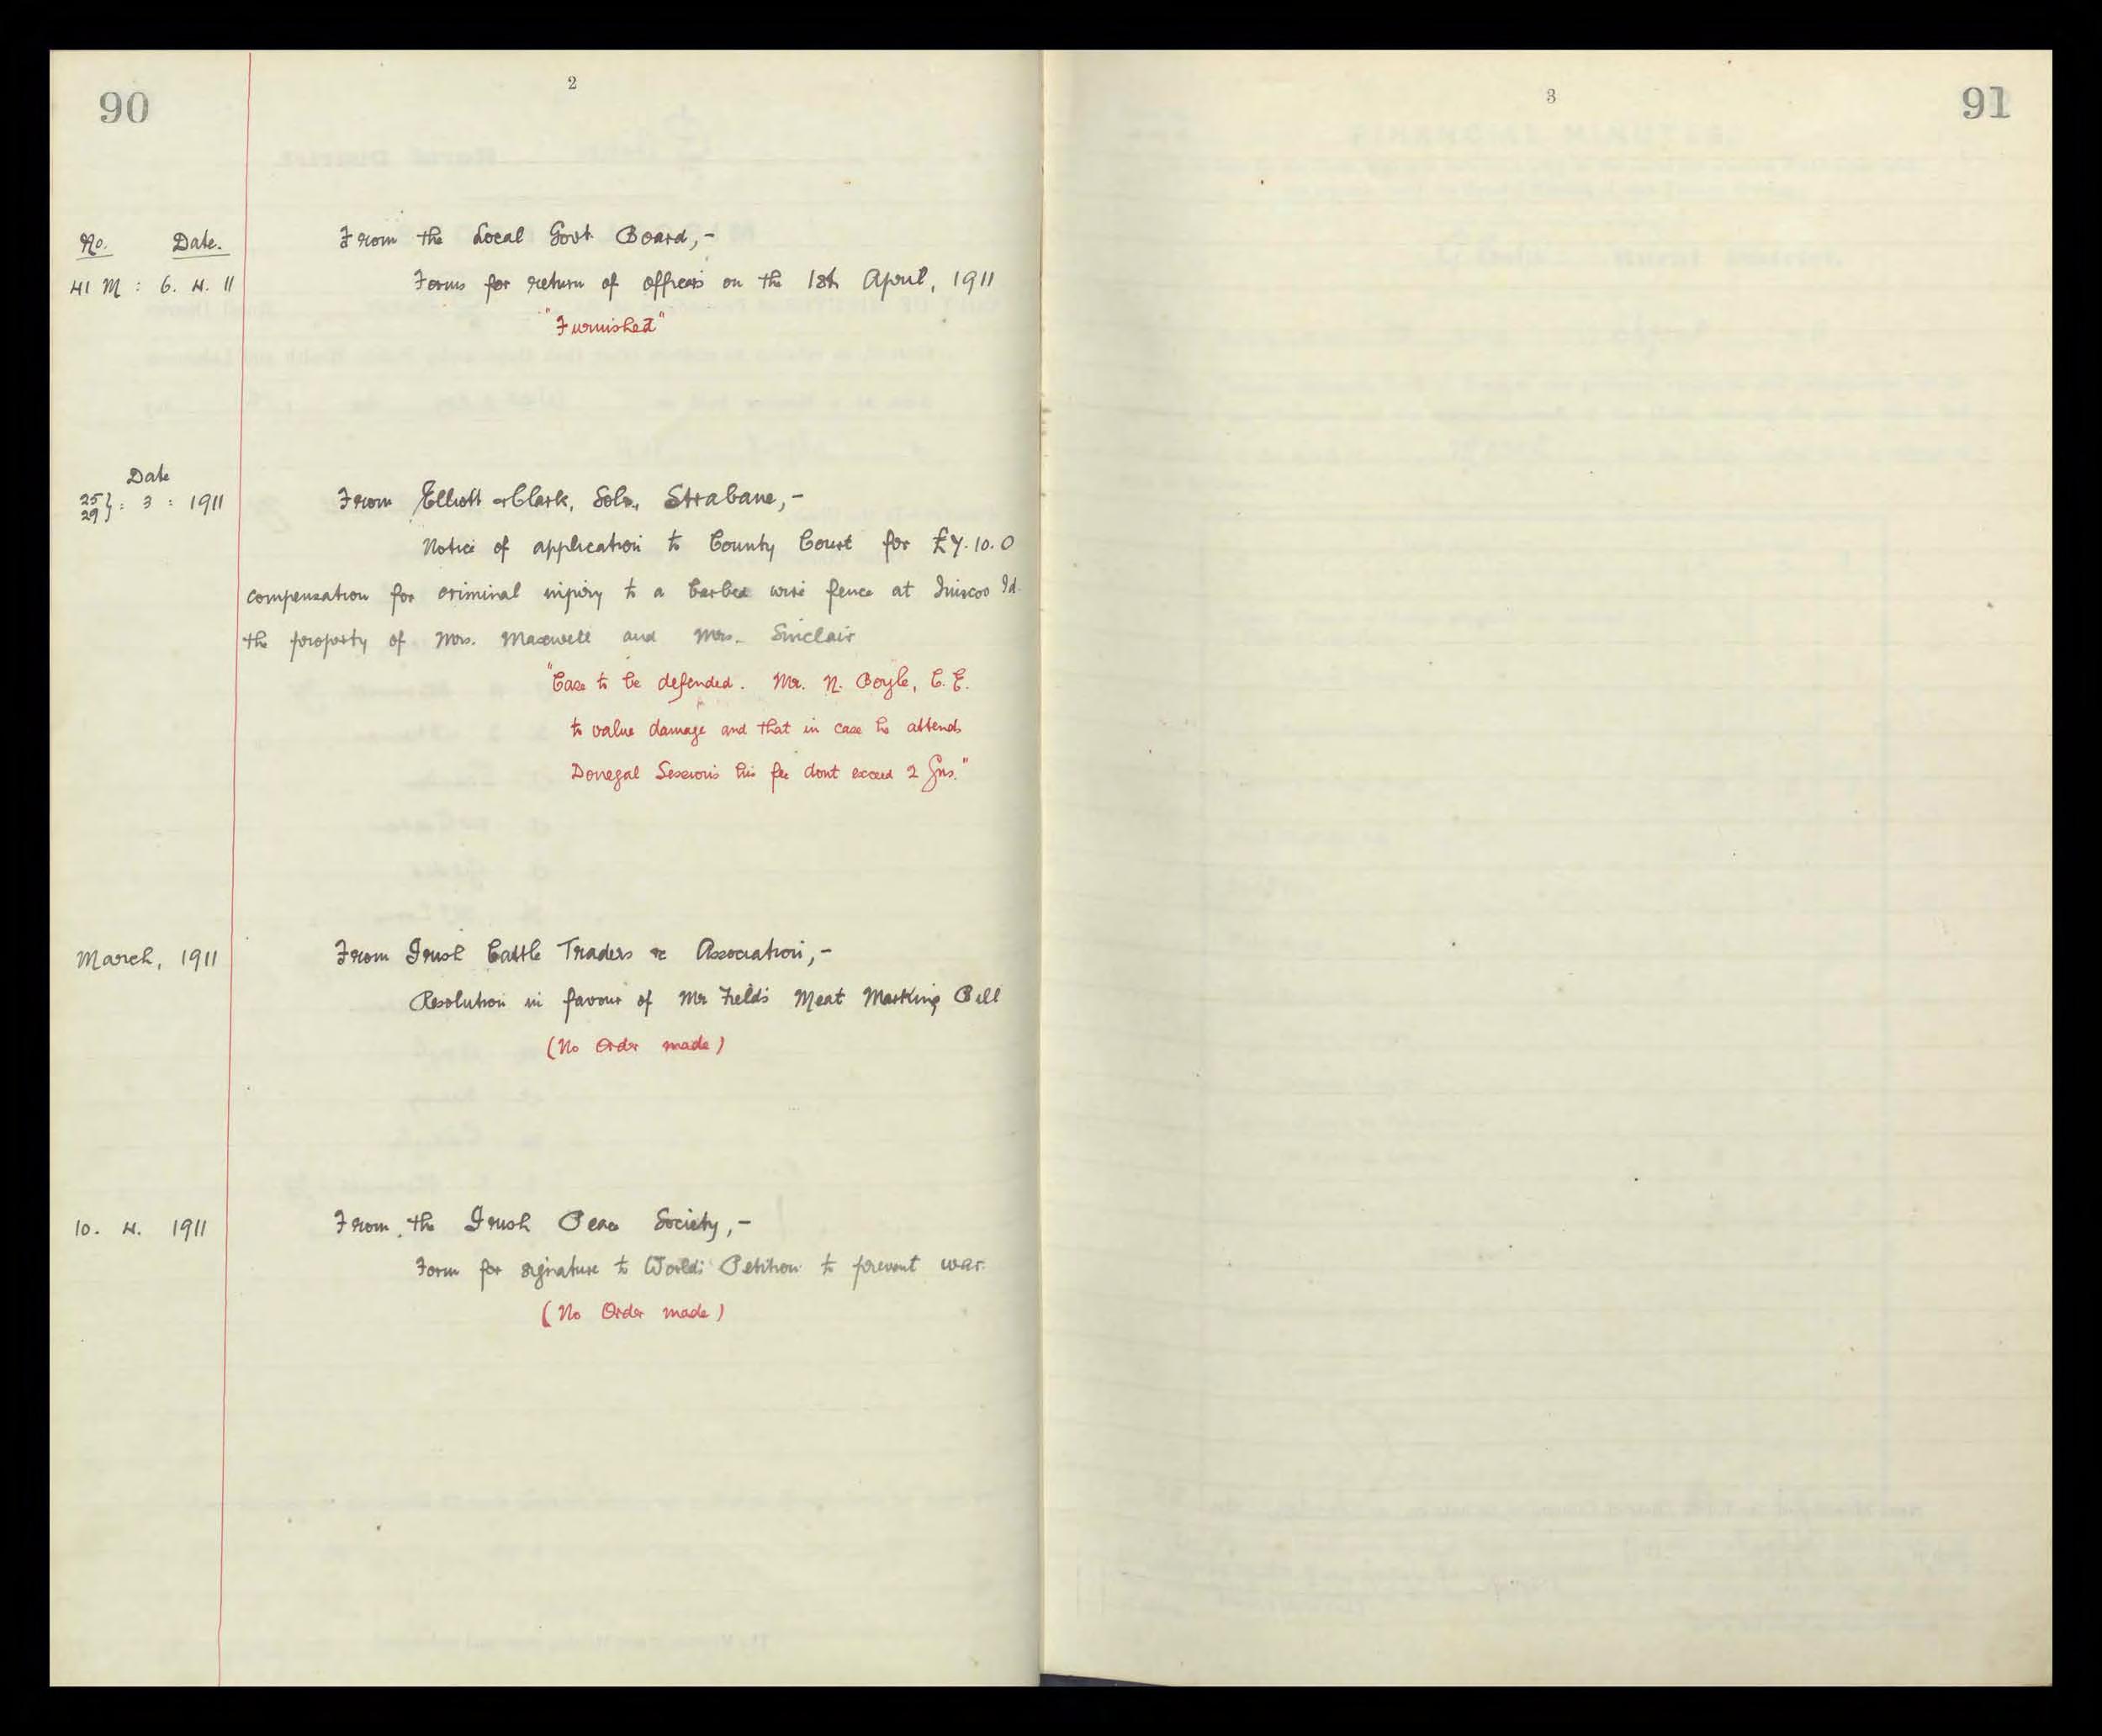 90
2
No. Date.
From the Local Govt. Board,-
41 M : 6. 4. 11
Forms for return of officers on the 1st April, 1911
"Furnished"
Date
25 29} : 3 : 1911
From Elliott & Clark, Solrs, Strabane,-
Notice of application to County Court for £7.10.0
compensation for criminal injury to a barbed wire fence at Iniscoo Id.
the property of Mrs. Maxwell and Mrs. Sinclair
"Case to be defended. Mr. N. Boyle, C.E.
to value damage and that in case he attends
Donegal Sessions his fee dont exceed 2 Gns."
March, 1911
From Irish Cattle Traders &c Association,-
Resolution in favour of Mr Field's Meat Marking Bill
(No Order made)
10. 4. 1911
From the Irish Peace Society,-
Form for signature to World's Petition to prevent war.
(No Order made)
3
91